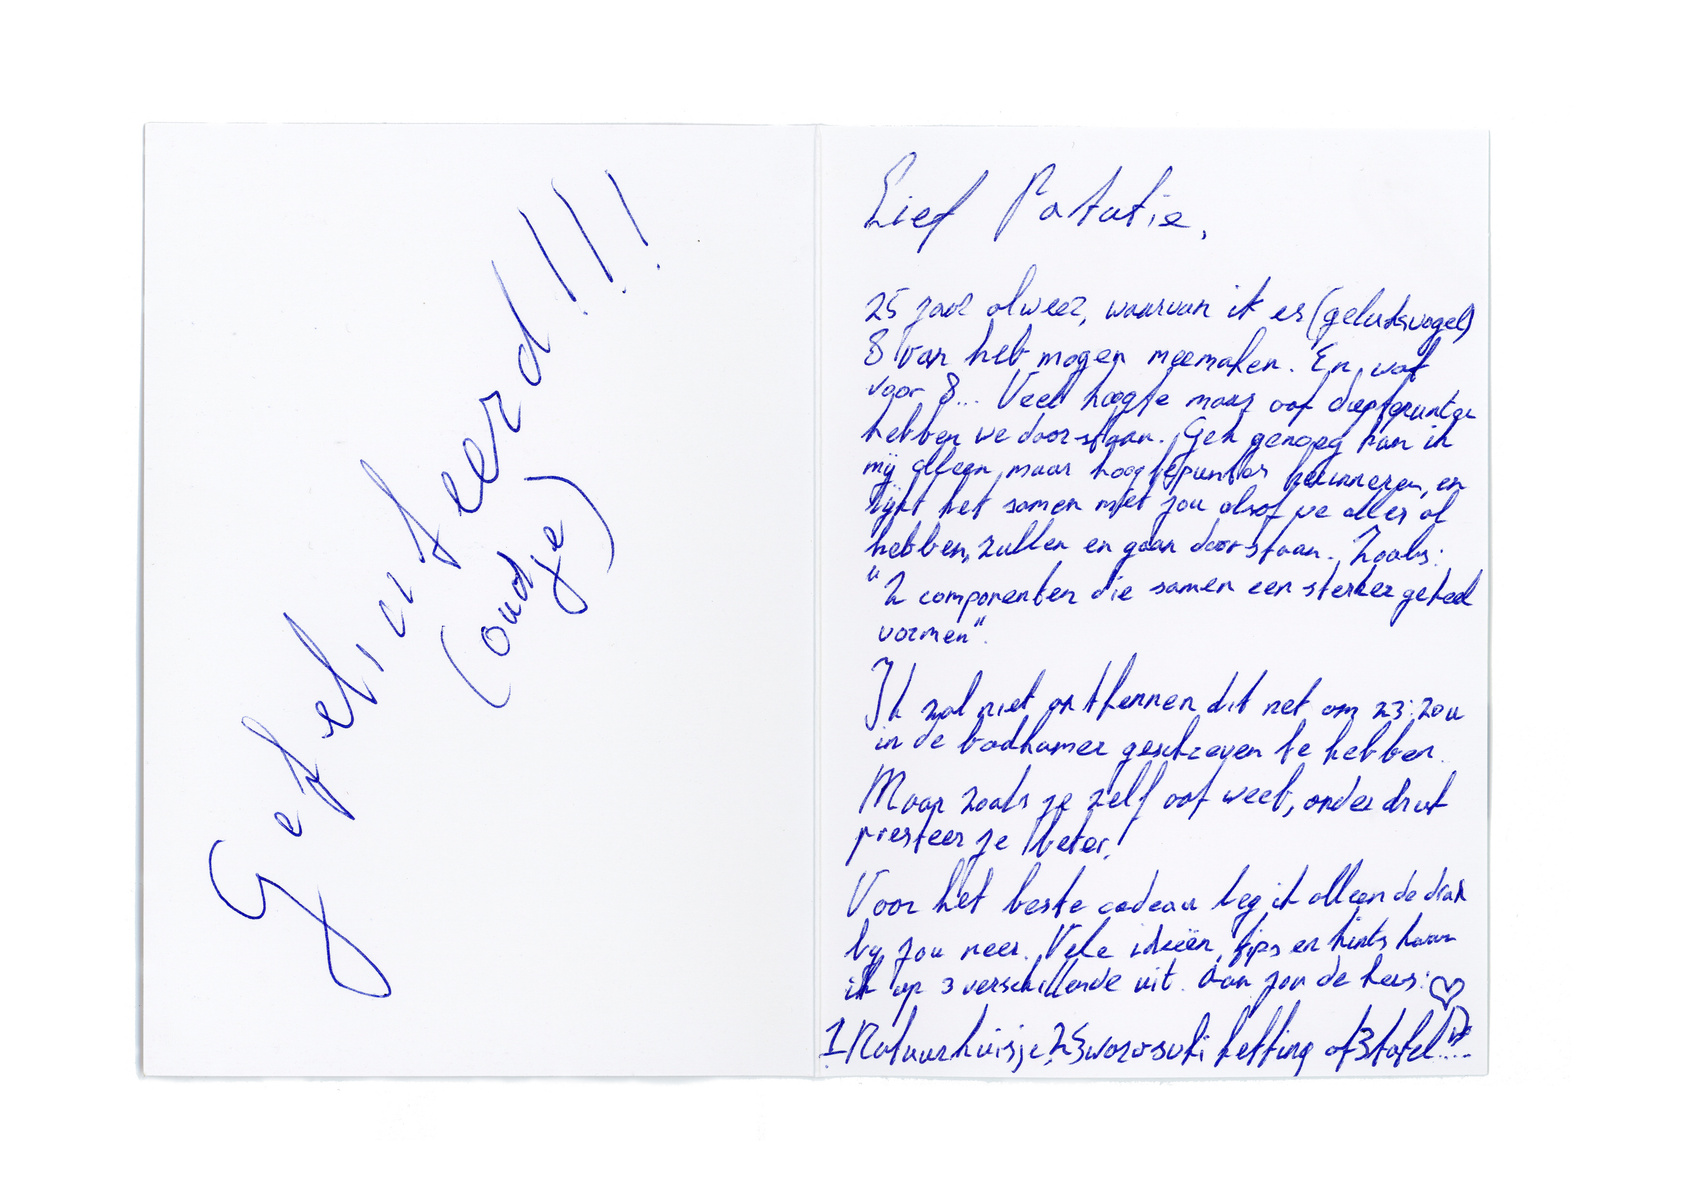 Gefeliciteerd!!!
(oudje)
Lief Patatie,
25 jaar alweer, waarvan ik er (geluksvogel)
8 van heb mogen meemaken. En wat
voor 8... Veel hoogte maar ook dieptepuntjes
hebben we doorstaan. Gek genoeg kan ik
mij alleen maar hoogtepunten herinneren, en
lijkt het samen met jou alsof we alles al
hebben, zullen en gaan doorstaan. Zoals:
"2 componenten die samen een sterker geheel
vormen".
Ik zal niet ontkennen dit net om 23:20u
in de badkamer geschreven te hebben.
Maar zoals je zelf ook weet, onder druk
presteer je beter!
Voor het beste cadeau leg ik alleen de druk
bij jou neer. Vele ideeën, tips en hints kwam
ik op 3 verschillende uit. Aan jou de keus: ♡
1 Natuurhuisje, 2 Swarovski ketting of 3 tafel....